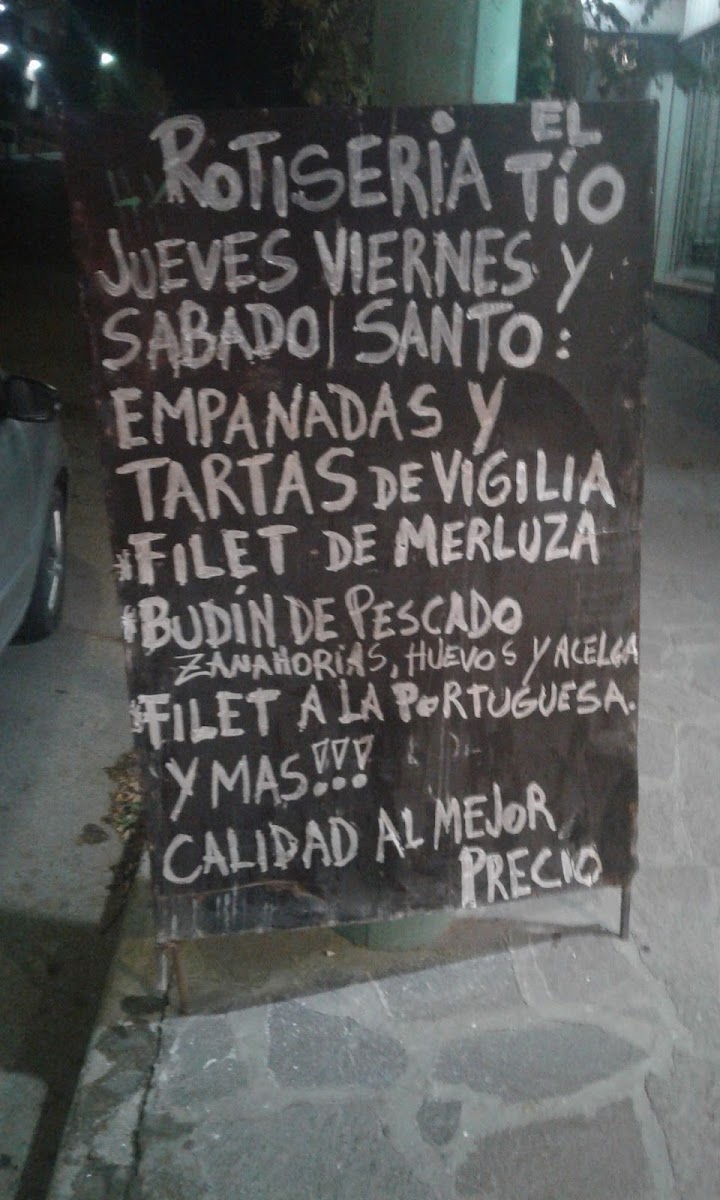 ROTISERIA EL TÍO
JUEVES VIERNES Y
SABADO SANTO:
EMPANADAS Y
TARTAS DE VIGILIA
*FILET DE MERLUZA
*BUDÍN DE PESCADO
ZANAHORIAS, HUEVOS Y ACELGA
*FILET A LA PORTUGUESA.
Y MAS!!!
CALIDAD AL MEJOR
PRECIO